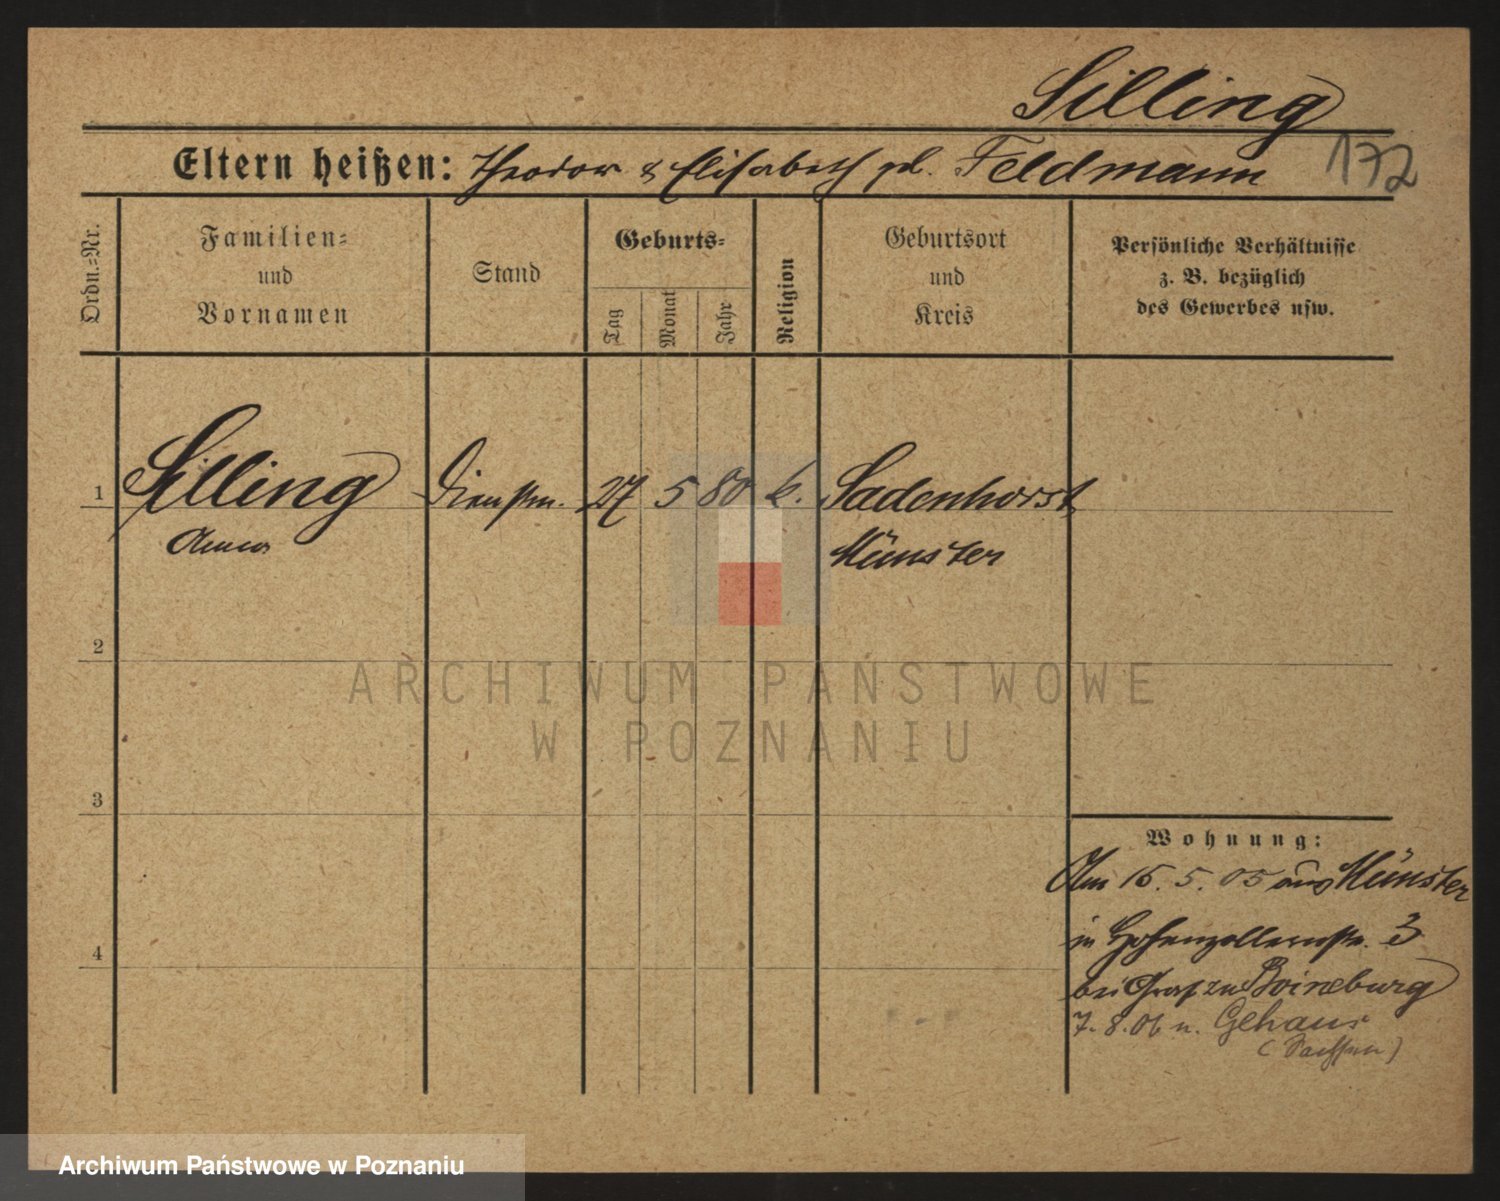 Silling
Eltern heißen: Theodor & Elisabeth geb. Feldmann
172
Ordn.=Nr.
Familien=
und
Vornamen
Stand
Geburts=
Tag
Monat
Jahr
Religion
Geburtsort
und
Kreis
Persönliche Verhältnisse
z. B. bezüglich
des Gewerbes usw.
1 Silling Dienstm. 27 5 80 k. Sadenhorst
Anna Münster
2
3
4
Wohnung:
Am 16. 5. 05 aus Münster
in Hohenzollernstr. 3
bei Graf zu Boineburg
7. 8. 06 n. Gehaus
(Sachsen)
ARCHIWUM PAŃSTWOWE
W POZNANIU
Archiwum Państwowe w Poznaniu